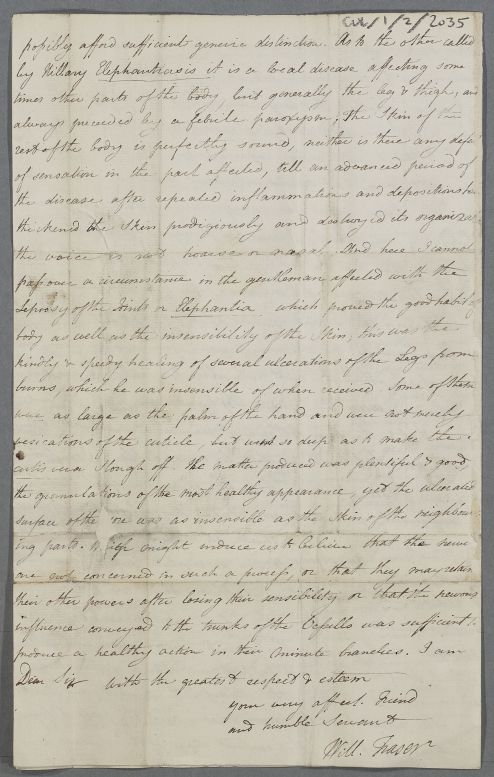 CUL/1/2/2035
possibly afford sufficient generic distinction. As to the other called
by Hillary Elephantiasis it is a local disease affecting some
times other parts of the body, but generally the leg & thigh, and
always preceded by a febrile paroxysm, the Skin of the
rest of the body is perfectly sound, neither is there any defect
of sensation in the part affected, till an advanced period of
the disease after repeated inflammations and depositions have
thickened the Skin prodigiously and destroyed its
the voice is not hoarse or nasal. And here I cannot
pass over a circumstance in the gentleman affected with the
Leprosy of the Joints or Elephantia which proved the good habit of
body as well as the insensibility of the Skin, this was the
kindly & speedy healing of several ulcerations of the Legs from
burns, which he was insensible of when received. Some of them
were as large as the palm of the hand and were not merely
vesications of the cuticle, but went so deep as to make the
cutis vera Slough off. the matter produced was plentiful & good,
the granulations of the most healthy appearance, yet the ulcerated
surface of the was as insensible as the Skin of the neighbour
ing parts. might induce us to believe that the nerves
are not concerned in such a process, or that they may retain
their other powers after losing their sensibility or that the nervous
influence conveyed to the trunks of the Vessells was sufficient to
produce a healthy action in their minute branches. I am
Dear Sir with the greatest respect & esteem
your very affect. Friend
and humble Servant
Will. Fraser